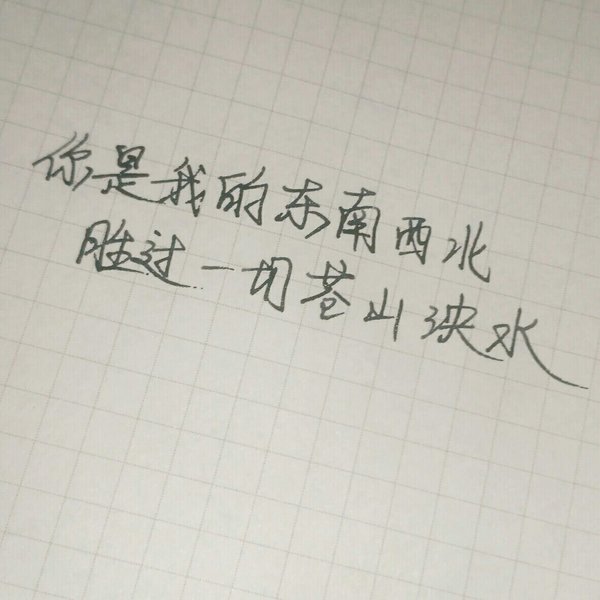 你是我的东南西北
胜过一切苍山泱水